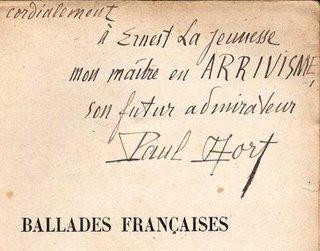 cordialement
à Ernest La Jeunesse
mon maître en ARRIVISME,
son futur admirateur
Paul Fort
BALLADES FRANÇAISES